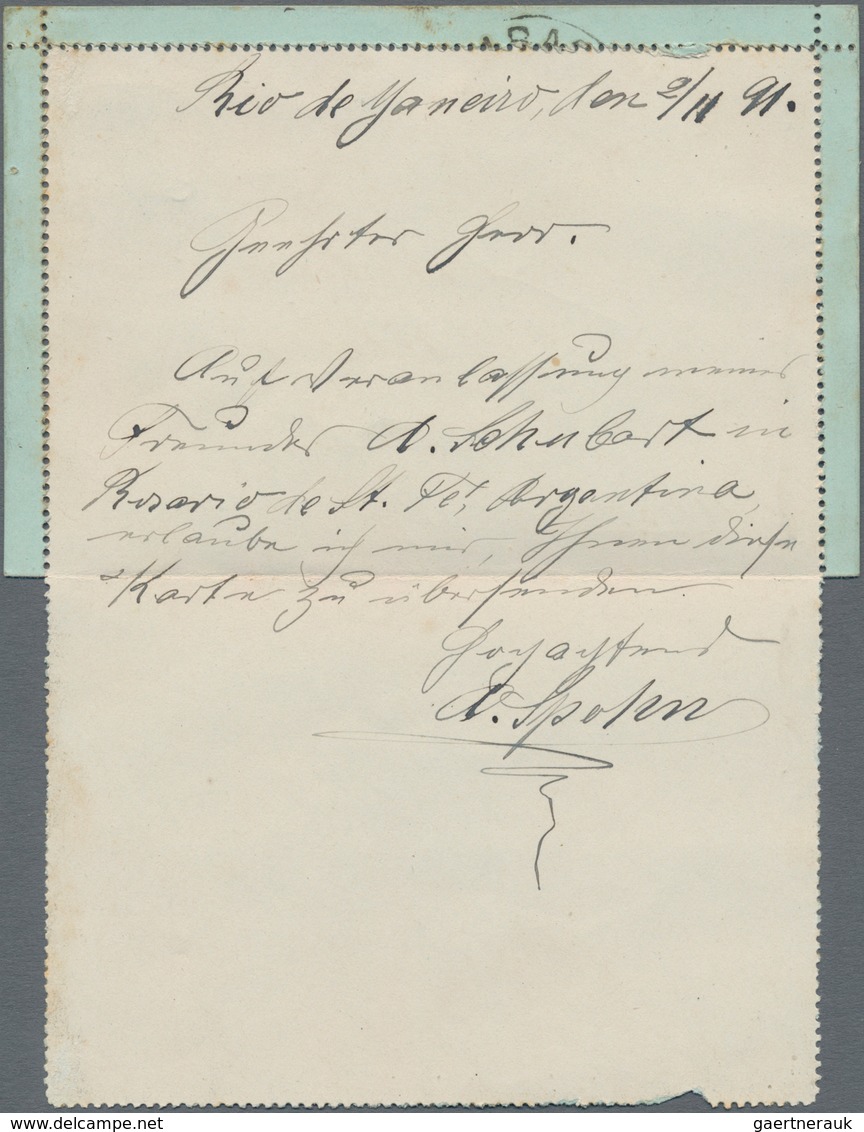 Rio de Janeiro, den 2/11 91.
Geehrter Herr.
Auf Veranlassung meines
Freundes A. Schubart in
Rosario de St. Fé, Argentina,
erlaube ich mir, Ihnen diese
Karte zu übersenden.
Hochachtend
A. Spohn
gaertnerauk